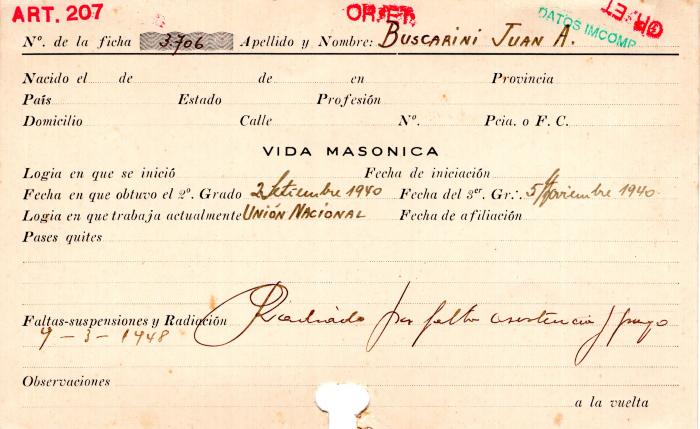 ART. 207 OR∴ET. DATOS IMCOMP. OR∴ET.
Nº. de la ficha 3.706 Apellido y Nombre: BUSCARINI JUAN A.
Nacido el de de en Provincia
País Estado Profesión
Domicilio Calle Nº. Pcia. o F. C.
VIDA MASONICA
Logia en que se inició Fecha de iniciación
Fecha en que obtuvo el 2º. Grado 2/Setiembre 1940 Fecha del 3er. Gr∴. 5/Noviembre 1940.
Logia en que trabaja actualmente UNIÓN NACIONAL Fecha de afiliación
Pases quites
Faltas-suspensiones y Radiación Radiado por falta asistencia y pago
9-3-1948
Observaciones
a la vuelta